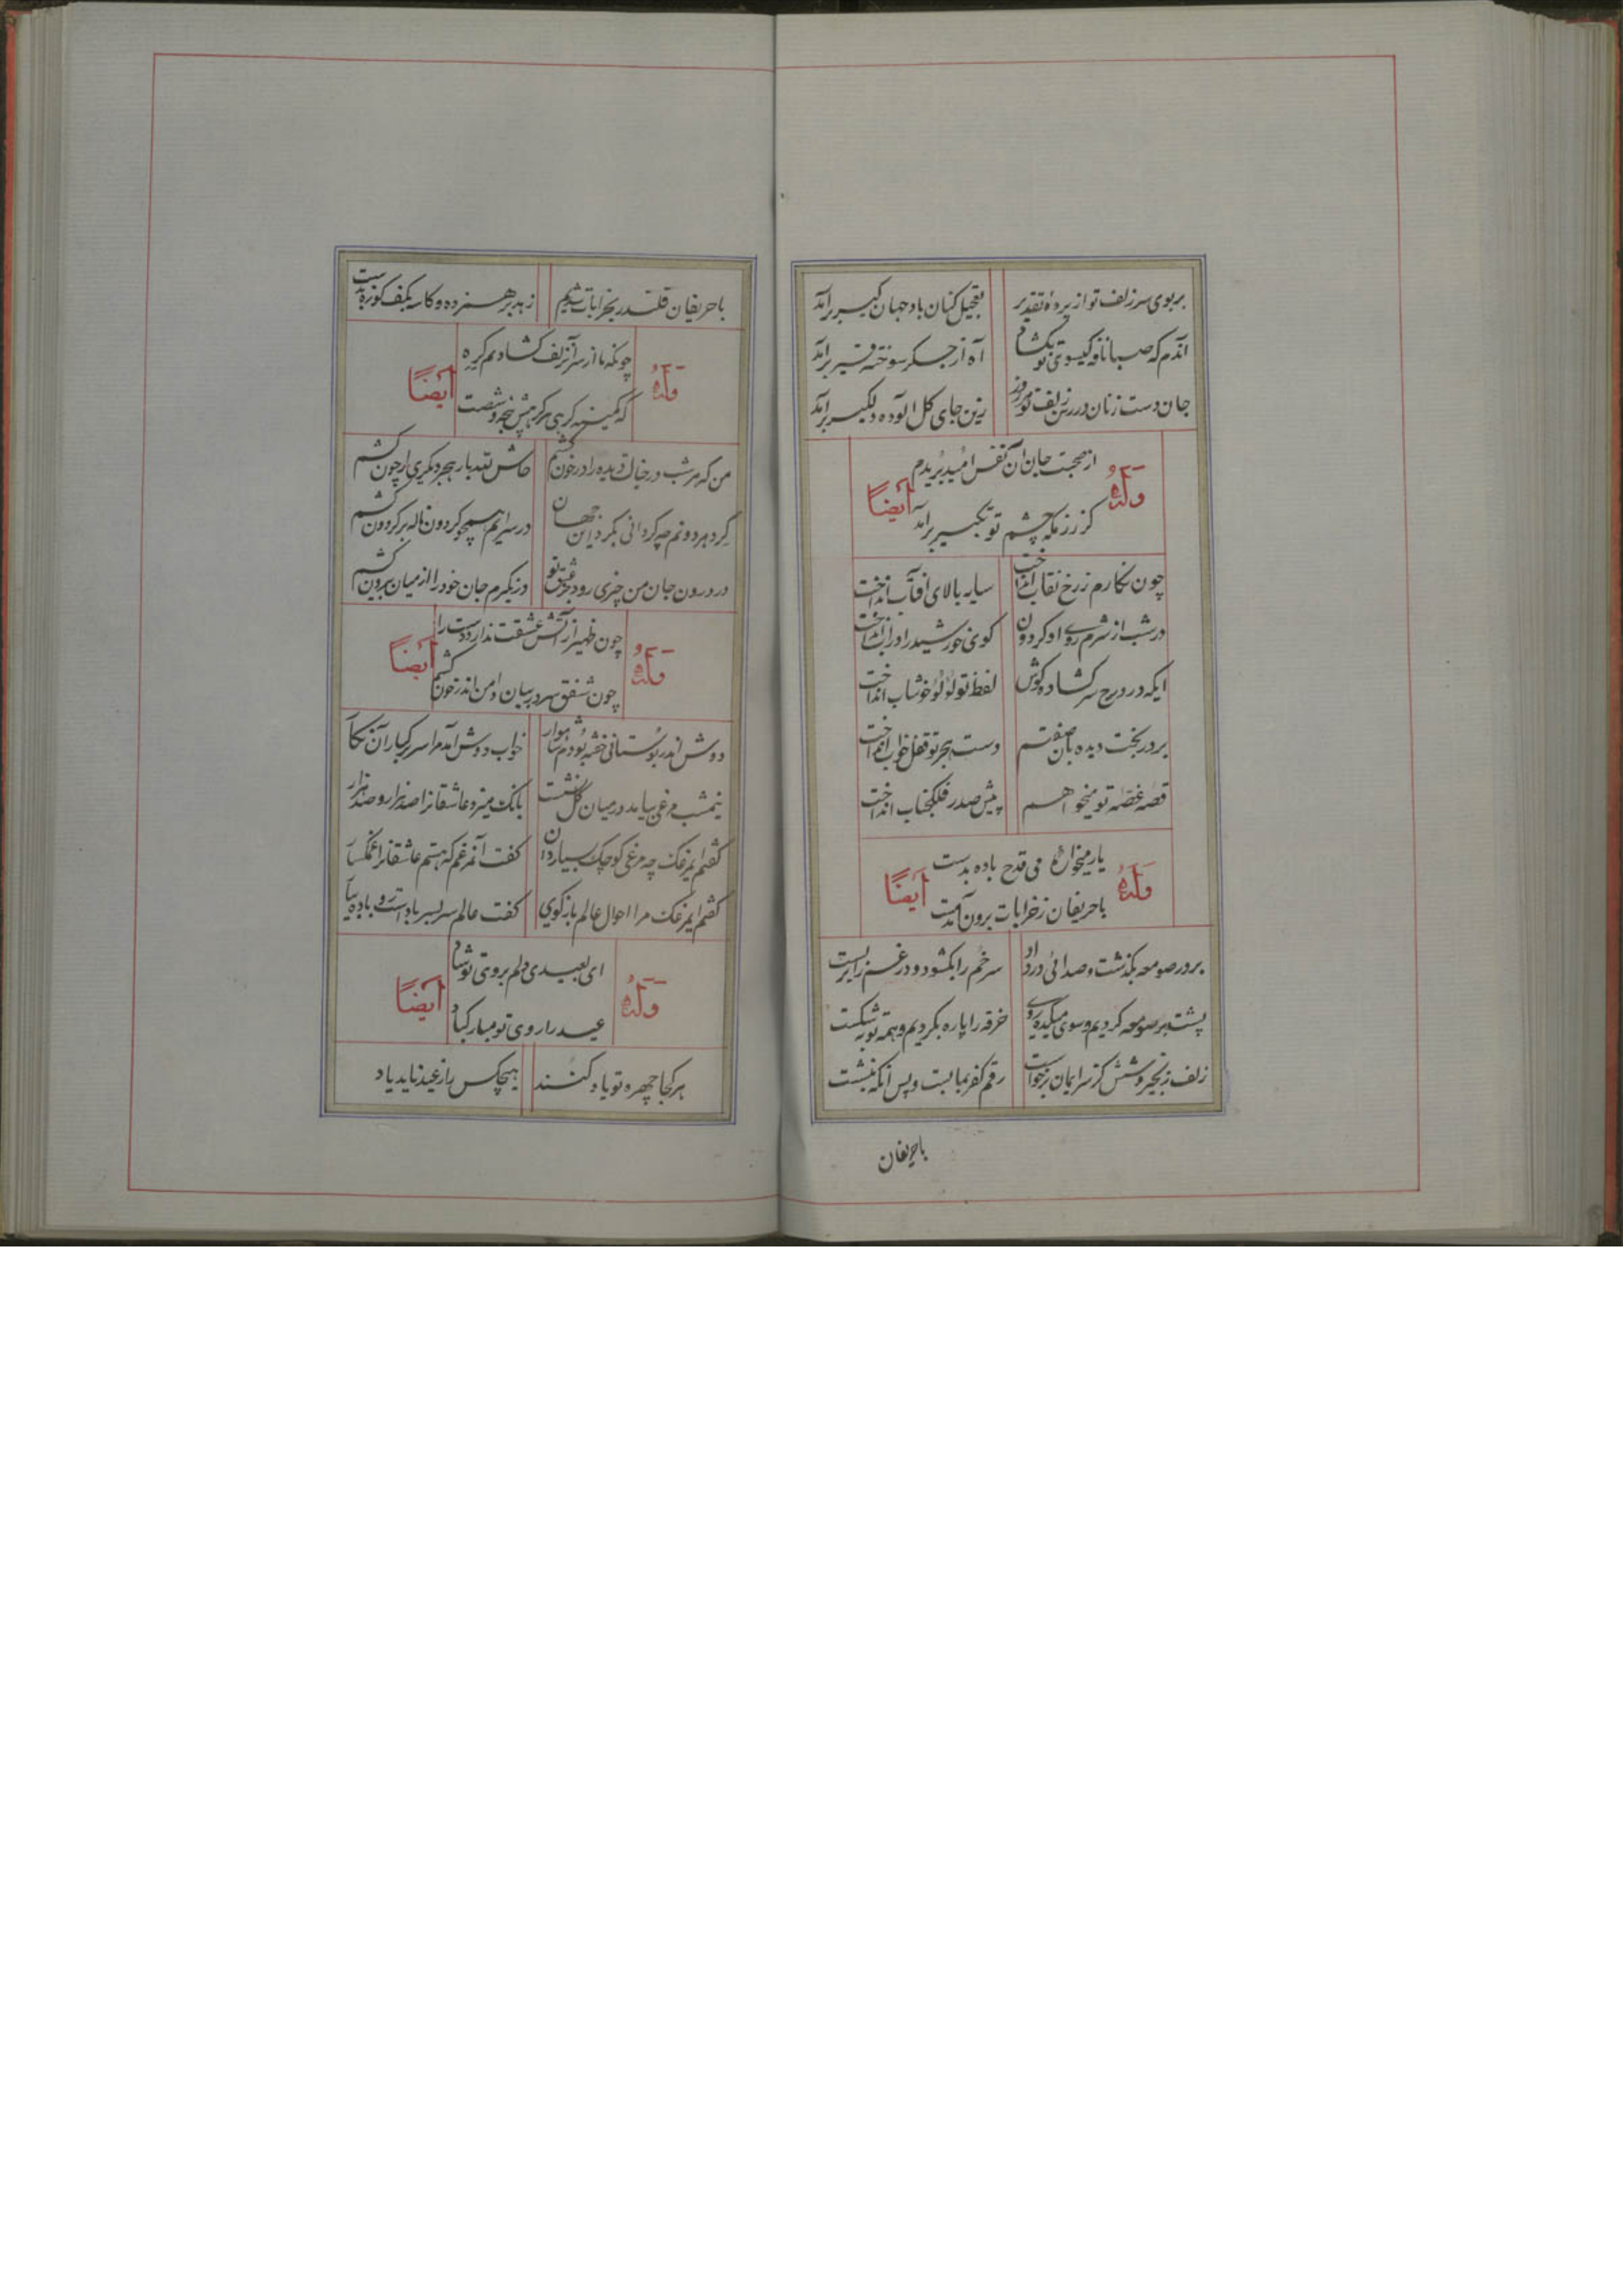 بربوی سر زلف تو از پرده تقدیر تعجیل کنان باد جهان گیر برآمد
آندم که صبا نافه گیسوی تو بگشاد آه از جگر سوخته قیر برآمد
جان دست زنان در رسن زلف تو هر روز زین جای گل آلوده دلگیر برآمد
از صحبت جان آن نفس امید بریدم
وله ایضاً
کز زنگه چشم تو تکبیر برآمد
چون نگارم ز رخ نقاب انداخت سایه بالای آفتاب انداخت
در شب از شرم روی او گردون گوی خورشید را در آب انداخت
ایکه در درج سر گشاده گوش لفظ تو لؤلؤ خوشاب انداخت
بر در تخت دیده بان صفتم دست هجر تو قفل خواب انداخت
قصه غصه تو میخواهم پیش صدر فلک جناب انداخت
یار میخواره می قدح باده بدست
وله ایضاً
با حریفان ز خرابات برون آمد مست
بر در صومعه بگذشت و صدائی در داد سر خم را بگشود و در غم را بربست
پشت بر صومعه کردیم و سوی میکده روی خرقه را پاره بکردیم و همه توبه شکست
زلف زنجیر وشش کز سر ایمان برخواست رقم کفر بما بست و پس آنکه بنشست
با حریفان
با حریفان قلندر بخرابات شدیم زهد بر هم زده و کاسه بکف کوزه بدست
چونکه ما از سر آن زلف گشادیم گره
وله ایضاً
که کمینه گرهی هر گرهش پنجه و شصت
من که هر شب در خیالت دیده را در خون کشم حاش لله بار هجر دیگری را چون کشم
گرد هر دونم چه گردانی بگرد این جهان در سرایم همچو گردون ناله بر گردون کشم
در درون جان من چیزی رود جز عشق تو در نگیرم جان خود را از میان بیرون کشم
چون ظهیر از آتش عشقت ندارد دست را
وله ایضاً
چون شفق سر در بیان دامن اندر خون کشم
دوش اندر بوستانی خفته بودم شاهوار خواب دوش آمد مرا سر بر کنار آن نگار
نیمشب مرغی بیامد در میان گل نشست بانک میزد عاشقانرا صد هزار و صد هزار
گفتم ای مرغک چه مرغی کوچک بسیار دان گفت آن مرغم که هستم عاشقانرا غمگسار
گفتم ای مرغک مرا احوال عالم باز گوی گفت عالم سر بسر بادست و باده بیار
ای بعیدی دلم بروی تو شاد
وله ایضاً
عید را روی تو مبارکباد
هر کجا چهره تو یاد کنند هیچکس را ز عید ناید یاد